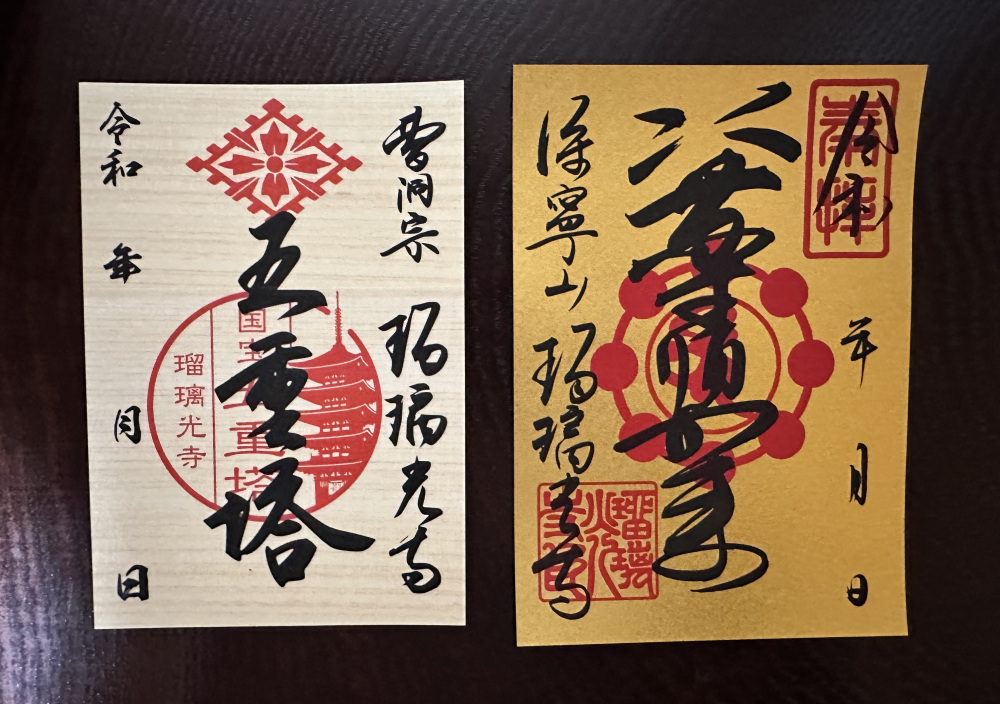 曹洞宗 瑠璃光寺
五重塔
国宝
五重塔
瑠璃光寺
令和 年 月 日
奉拝
令和 年 月 日
薬師如来
保寧山 瑠璃光寺